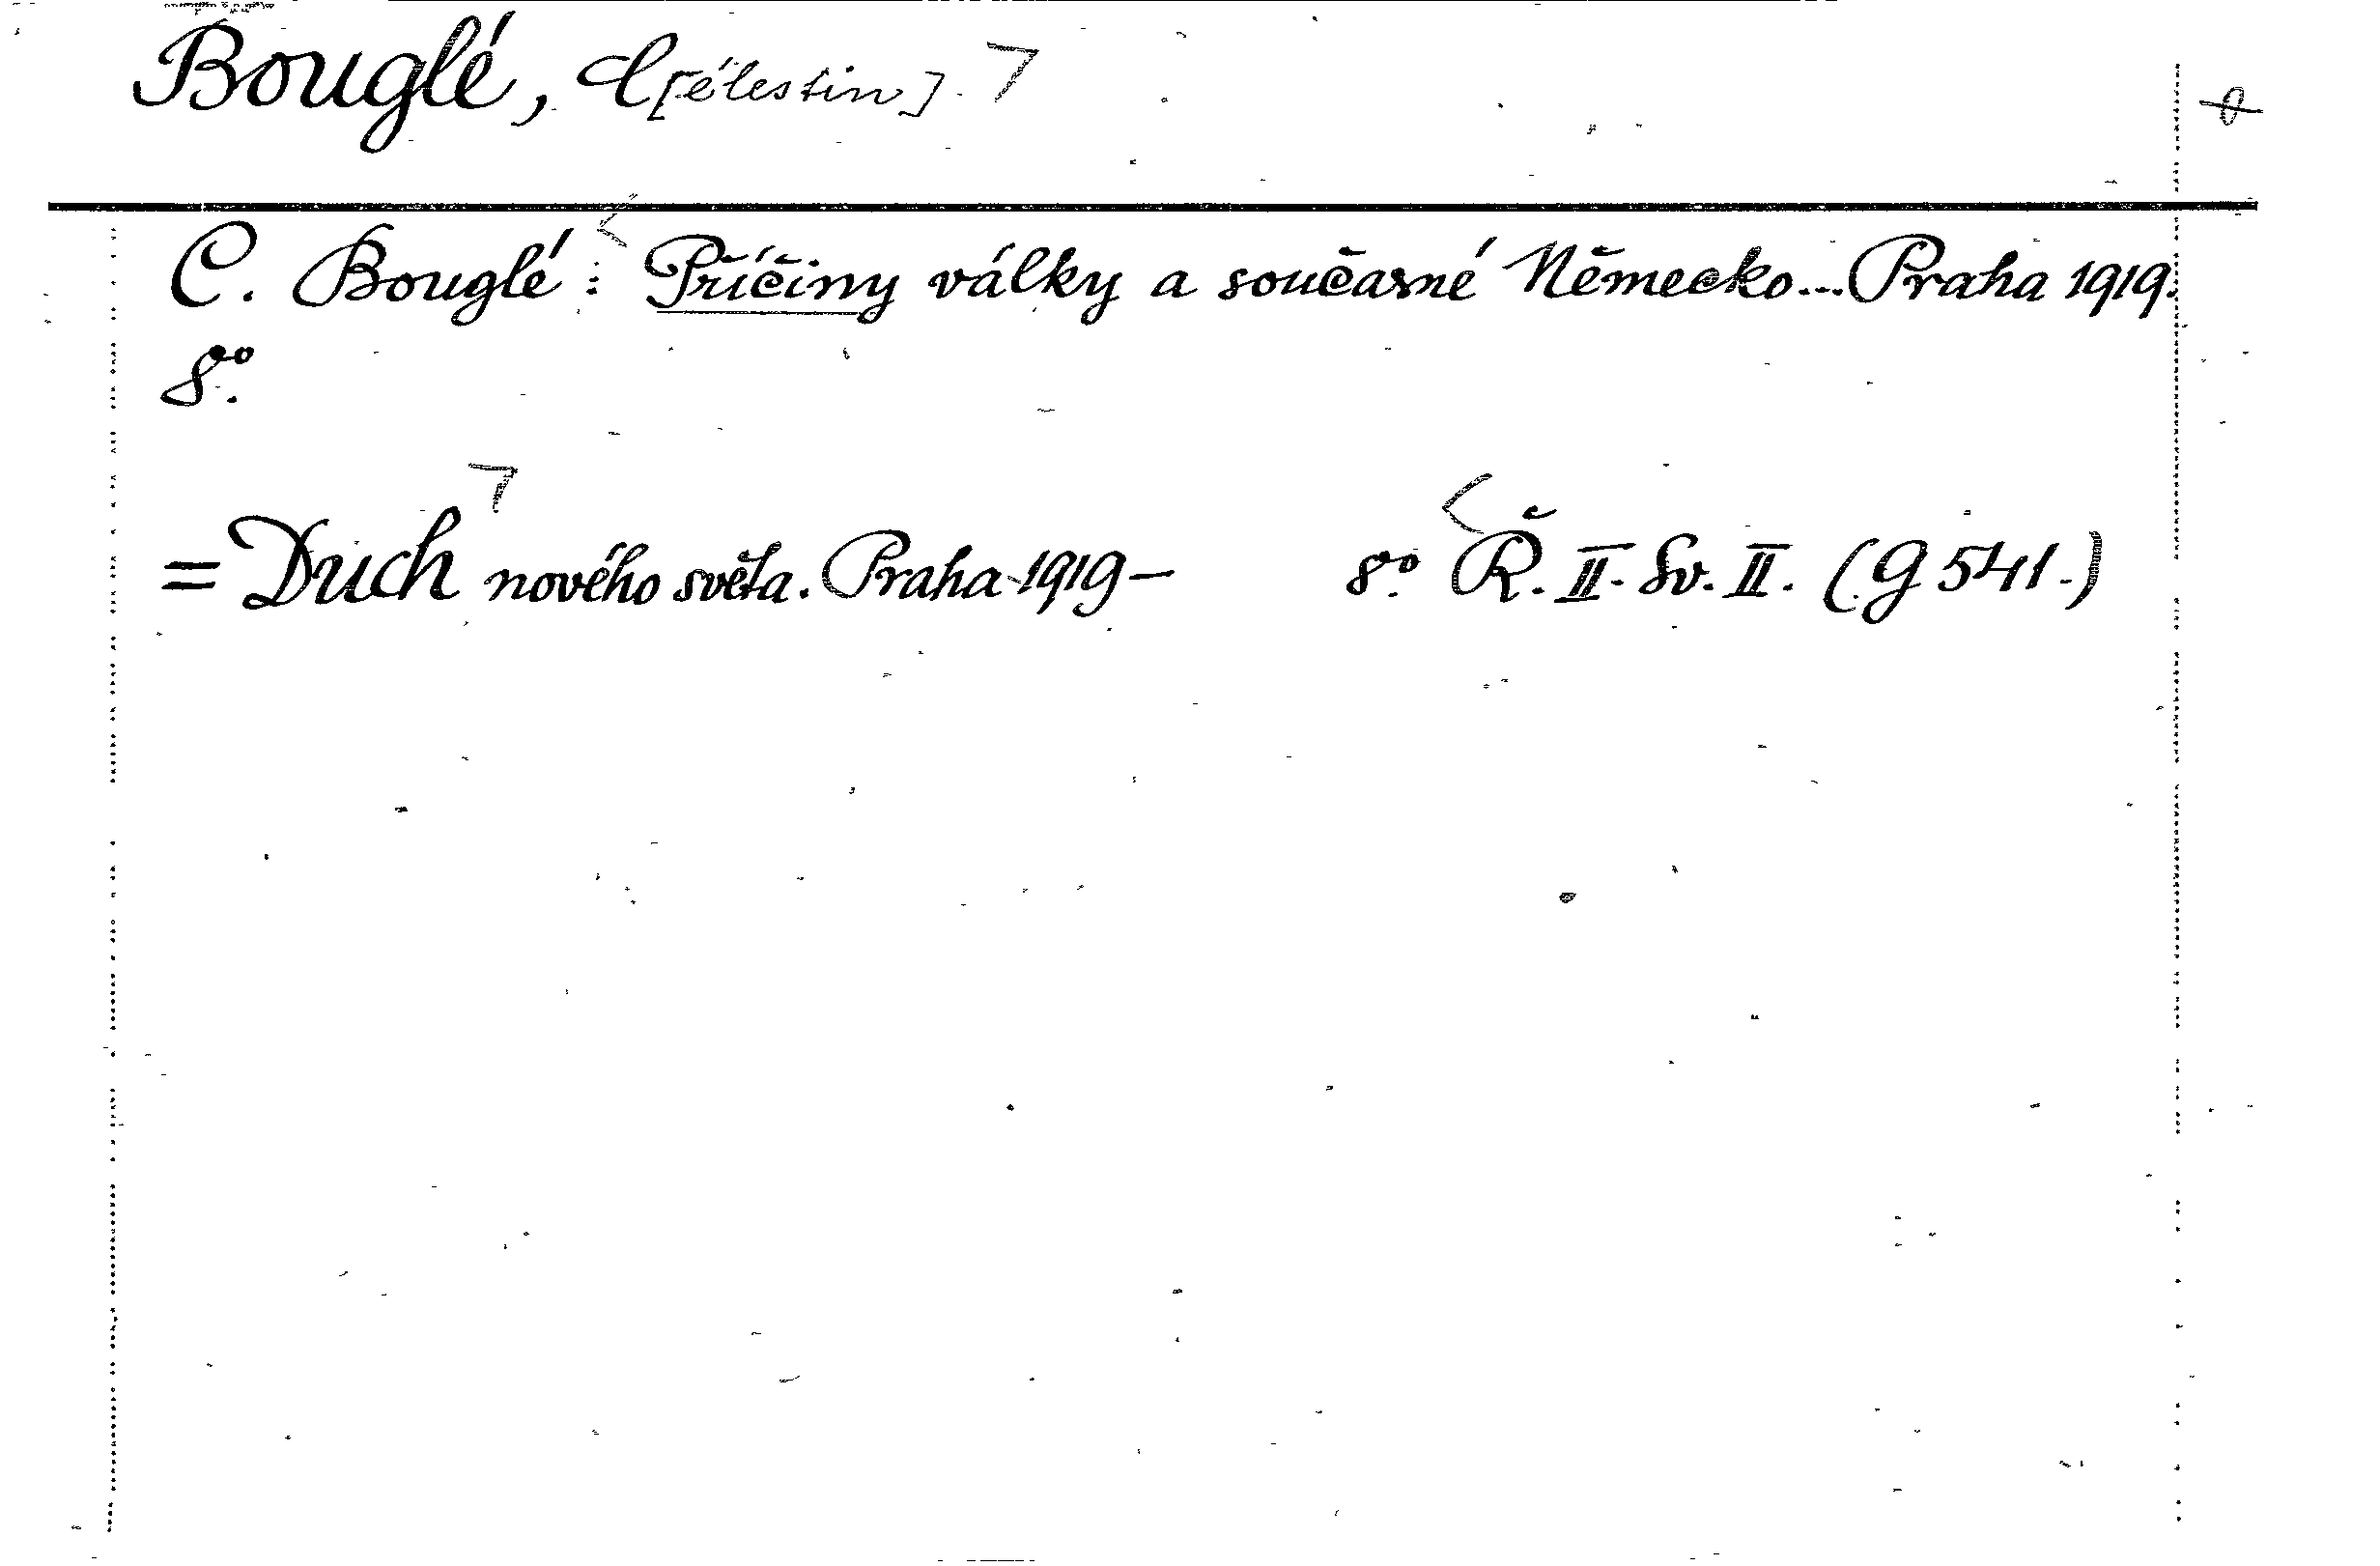 Bouglé, C[élestin].
C. Bouglé: Příčiny války a současné Německo... Praha 1919.
8°.
= Duch nového světa. Praha 1919 – 8°. Ř. II. Sv. II. (G 541.)